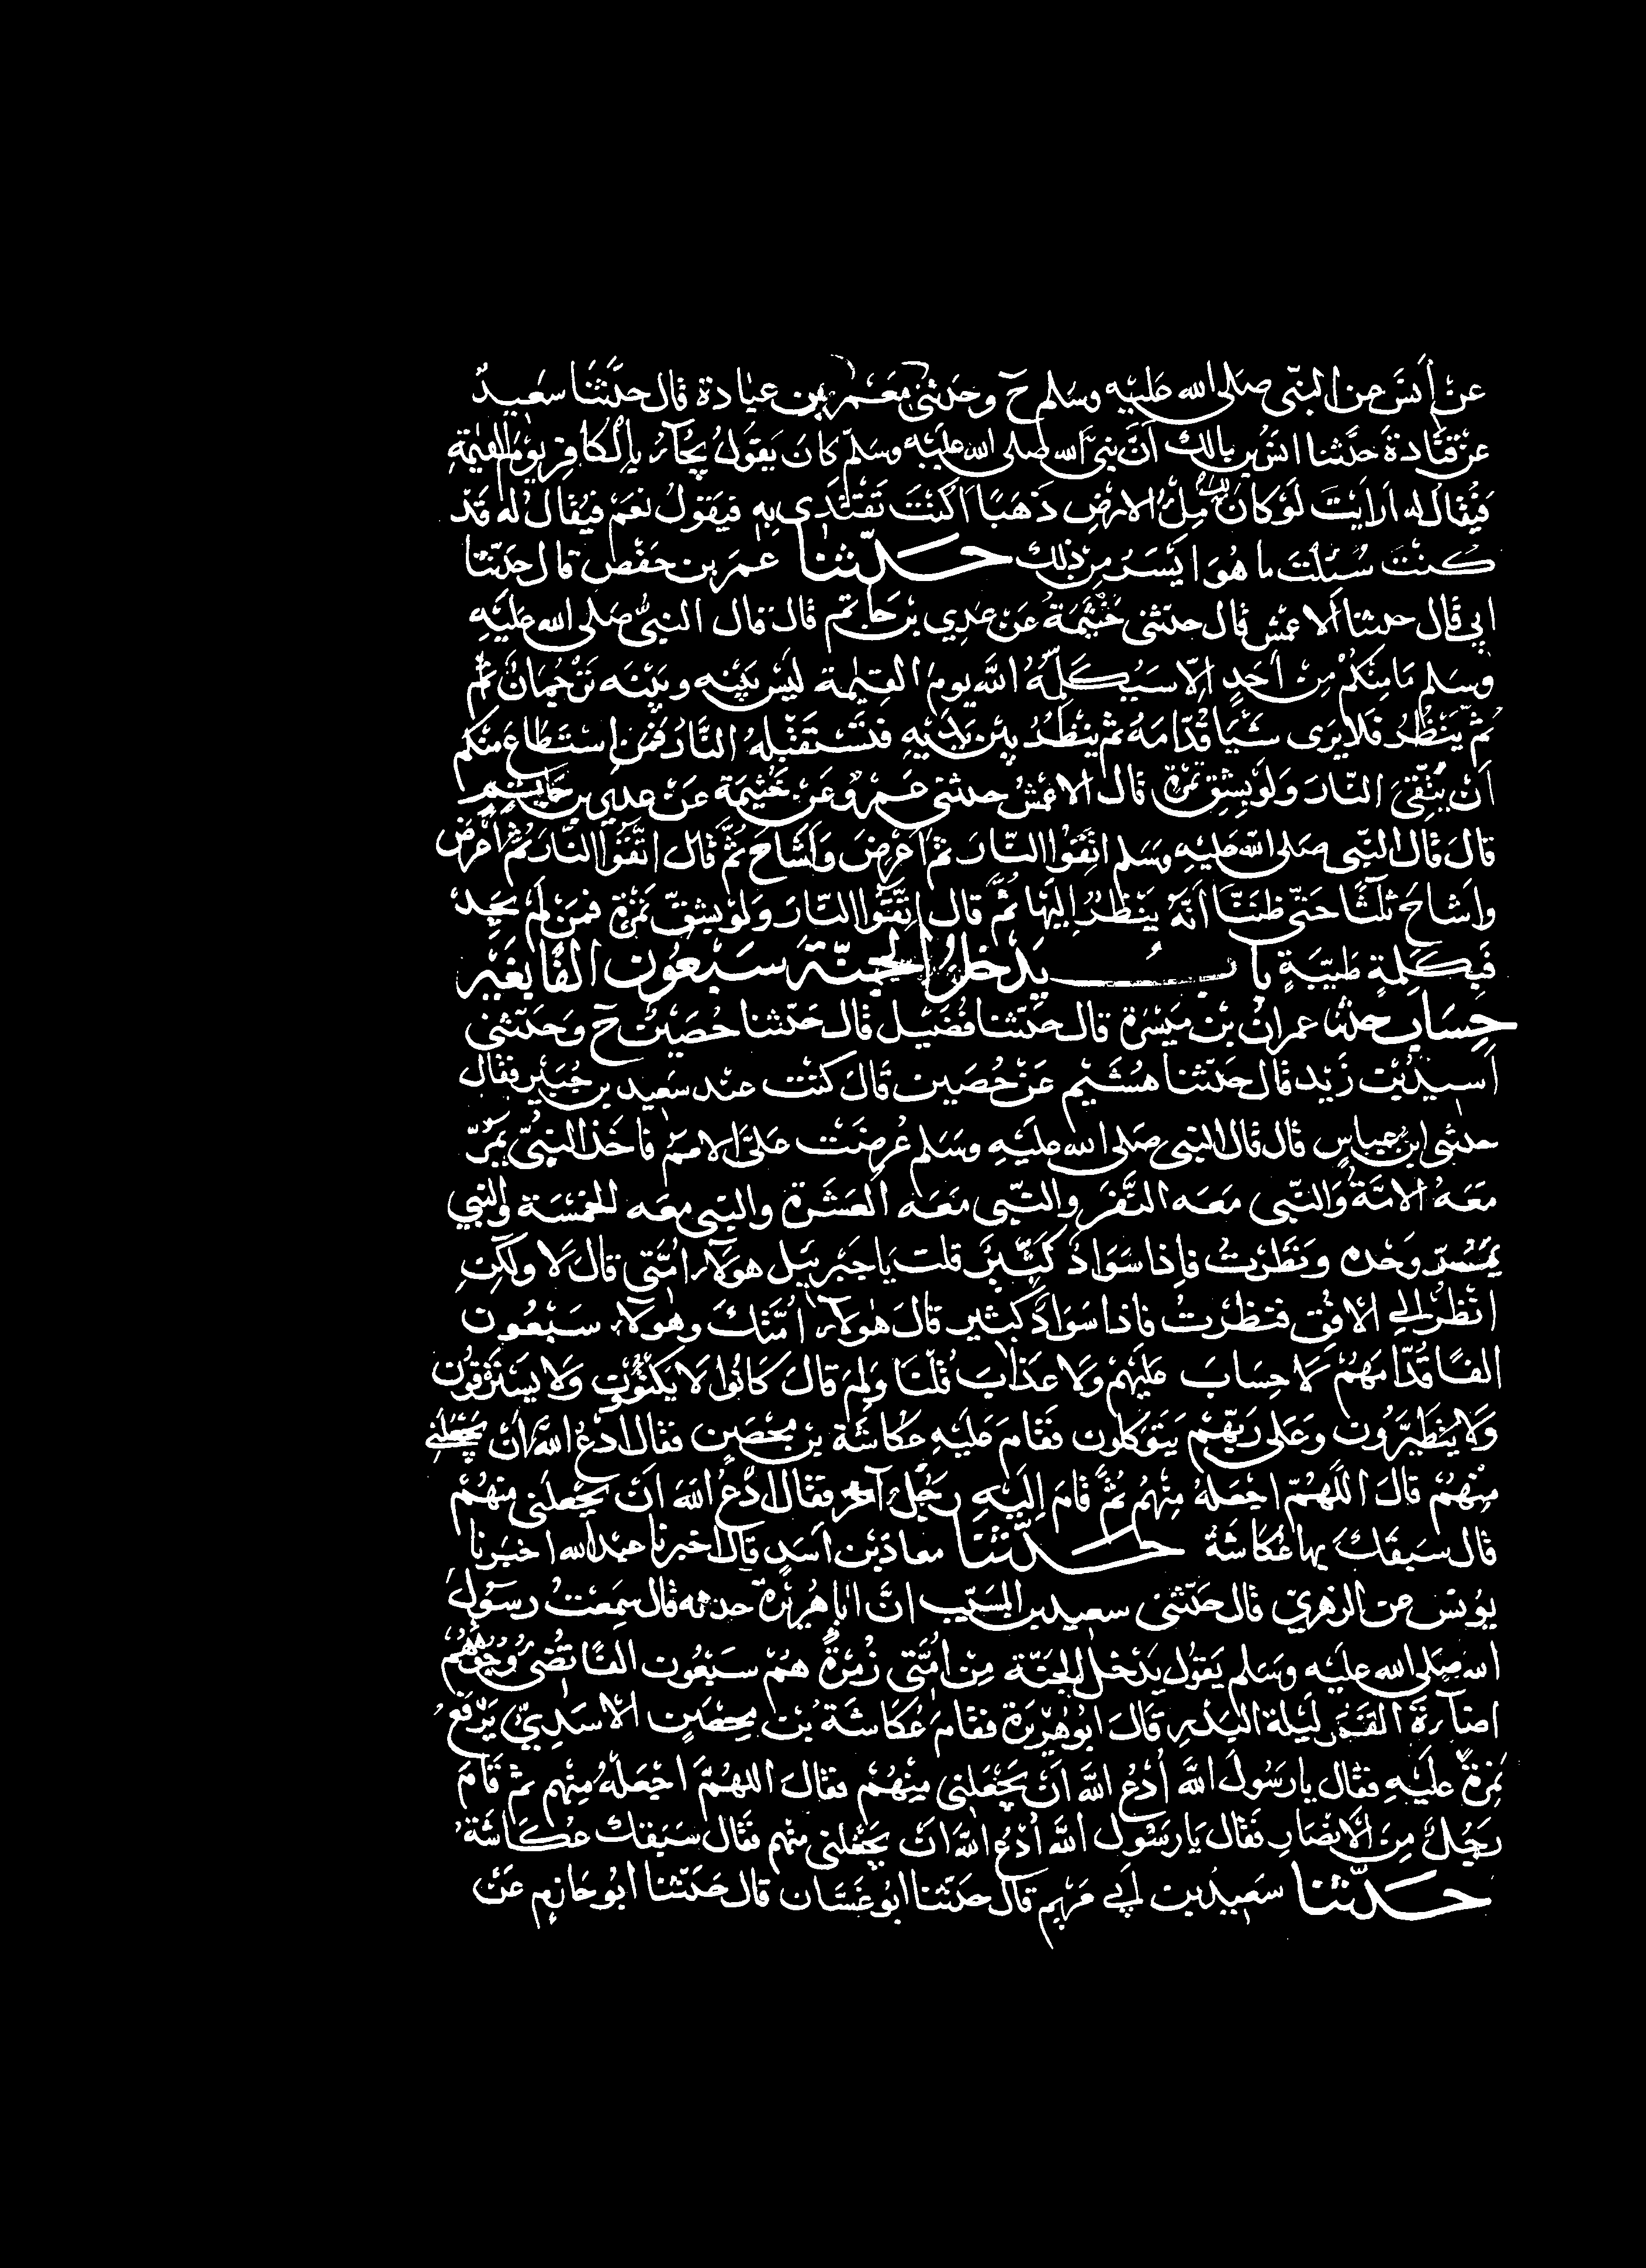 عن أنس عن النبي صلى الله عليه وسلم ح وحدثني معمر بن عبادة قال حدثنا سعيد
عن قتادة حدثنا أنس بن مالك أن نبي الله صلى الله عليه وسلم كان يقول يجاء بالكافر يوم القيمة
فيقال له أرأيت لو كان لك ملء الأرض ذهبا أكنت تفتدي به فيقول نعم فيقال له قد
كنت سئلت ما هو أيسر من ذلك حدثنا عمر بن حفص قال حدثنا
أبي قال حدثنا الأعمش قال حدثني خيثمة عن عدي بن حاتم قال قال النبي صلى الله عليه
وسلم ما منكم من أحد إلا سيكلمه الله يوم القيمة ليس بينه وبينه ترجمان ثم
ثم ينظر فلا يرى شيأ قدامه ثم ينظر بين يديه فتستقبله النار فمن استطاع منكم
أن يتقي النار ولو بشق تمرة قال الأعمش حدثني عمرو عن خيثمة عن عدي بن حاتم
قال قال النبي صلى الله عليه وسلم اتقوا النار ثم أعرض وأشاح ثم قال اتقوا النار ثم أعرض
وأشاح ثلثا حتى ظننا أنه ينظر إليها ثم قال اتقوا النار ولو بشق تمرة فمن لم يجد
فبكلمة طيبة باب يدخل الجنة سبعون ألفا بغير
حساب حدثنا عمران بن ميسرة قال حدثنا فضيل قال حدثنا حصين ح وحدثني
أسيد بن زيد قال حدثنا هشيم عن حصين قال كنت عند سعيد بن جبير فقال
حدثني ابن عباس قال قال النبي صلى الله عليه وسلم عرضت علي الأمم فأخذ النبي يمر
معه الأمة والنبي معه النفر والنبي معه العشرة والنبي معه الخمسة والنبي
يمر وحده ونظرت فإذا سواد كثير قلت يا جبريل هولاء أمتي قال لا ولكن
انظر إلى الأفق فنظرت فإذا سواد كثير قال هولاء أمتك وهولاء سبعون
ألفا قدامهم لا حساب عليهم ولا عذاب قلنا ولم قال كانوا لا يكتوون ولا يسترقون
ولا يتطيرون وعلى ربهم يتوكلون فقام عليه عكاشة بن محصن فقال ادع الله أن يجعلني
منهم قال اللهم اجعله منهم ثم قام إليه رجل آخر فقال ادع الله أن يجعلني منهم
قال سبقك بها عكاشة حدثنا معاذ بن أسد قال أخبرنا عبد الله أخبرنا
يونس عن الزهري قال حدثني سعيد بن المسيب أن أبا هريرة حدثه قال سمعت رسول
الله صلى الله عليه وسلم يقول يدخل الجنة من أمتي زمرة هم سبعون ألفا تضئ وجوههم
إضاءة القمر ليلة البدر قال أبو هريرة فقام عكاشة بن محصن الأسدي يرفع
نمرة عليه فقال يا رسول الله أدع الله أن يجعلني منهم فقال اللهم اجعله منهم ثم قام
رجل من الأنصار فقال يا رسول الله أدع الله أن يجعلني منهم فقال سبقك عكاشة
حدثنا سعيد بن أبي مريم قال حدثنا أبو غسان قال حدثنا أبو حازم عن